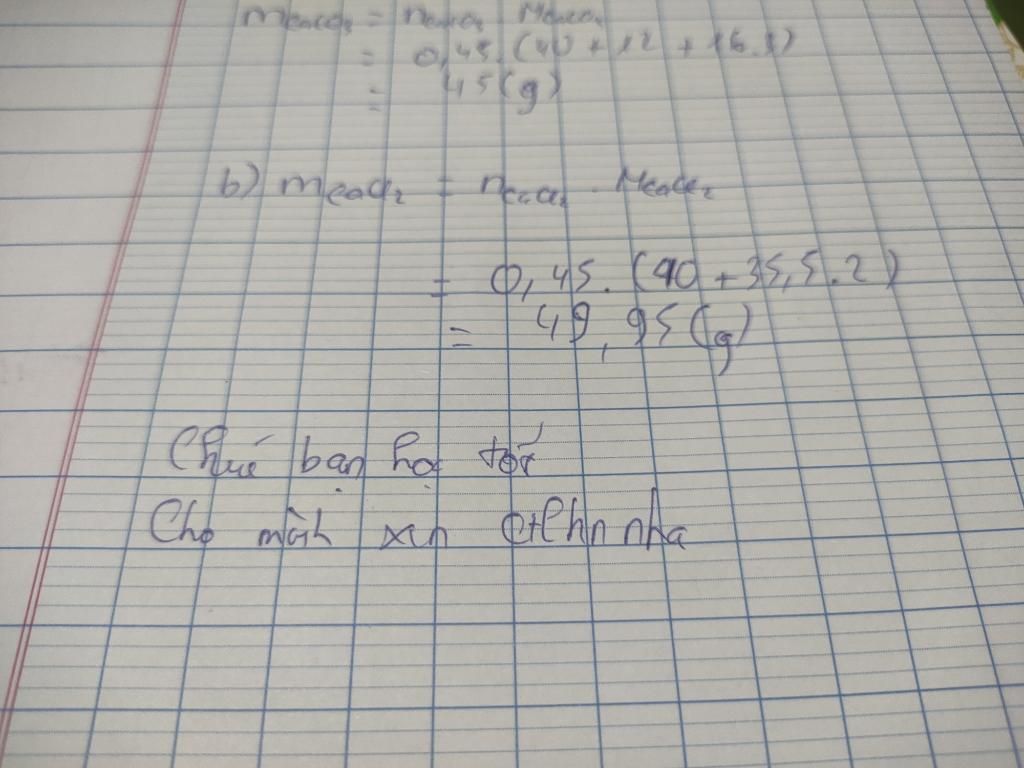 mCaCO3 = nCaCO3 . MCaCO3
= 0,45.(40 + 12 + 16.3)
= 45(g)
b) mCaCl2 = nCaCl2 . MCaCl2
= 0,45.(40 + 35,5.2)
= 49,95(g)
Chúc bạn học tốt
Cho mình xin ctlhn nha